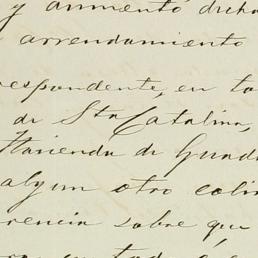 y aumentó dicha
arrendamiento
respondente, en ta
de Sta Catalina,
Hacienda de Guad
algun otro coli
rencia sobre que